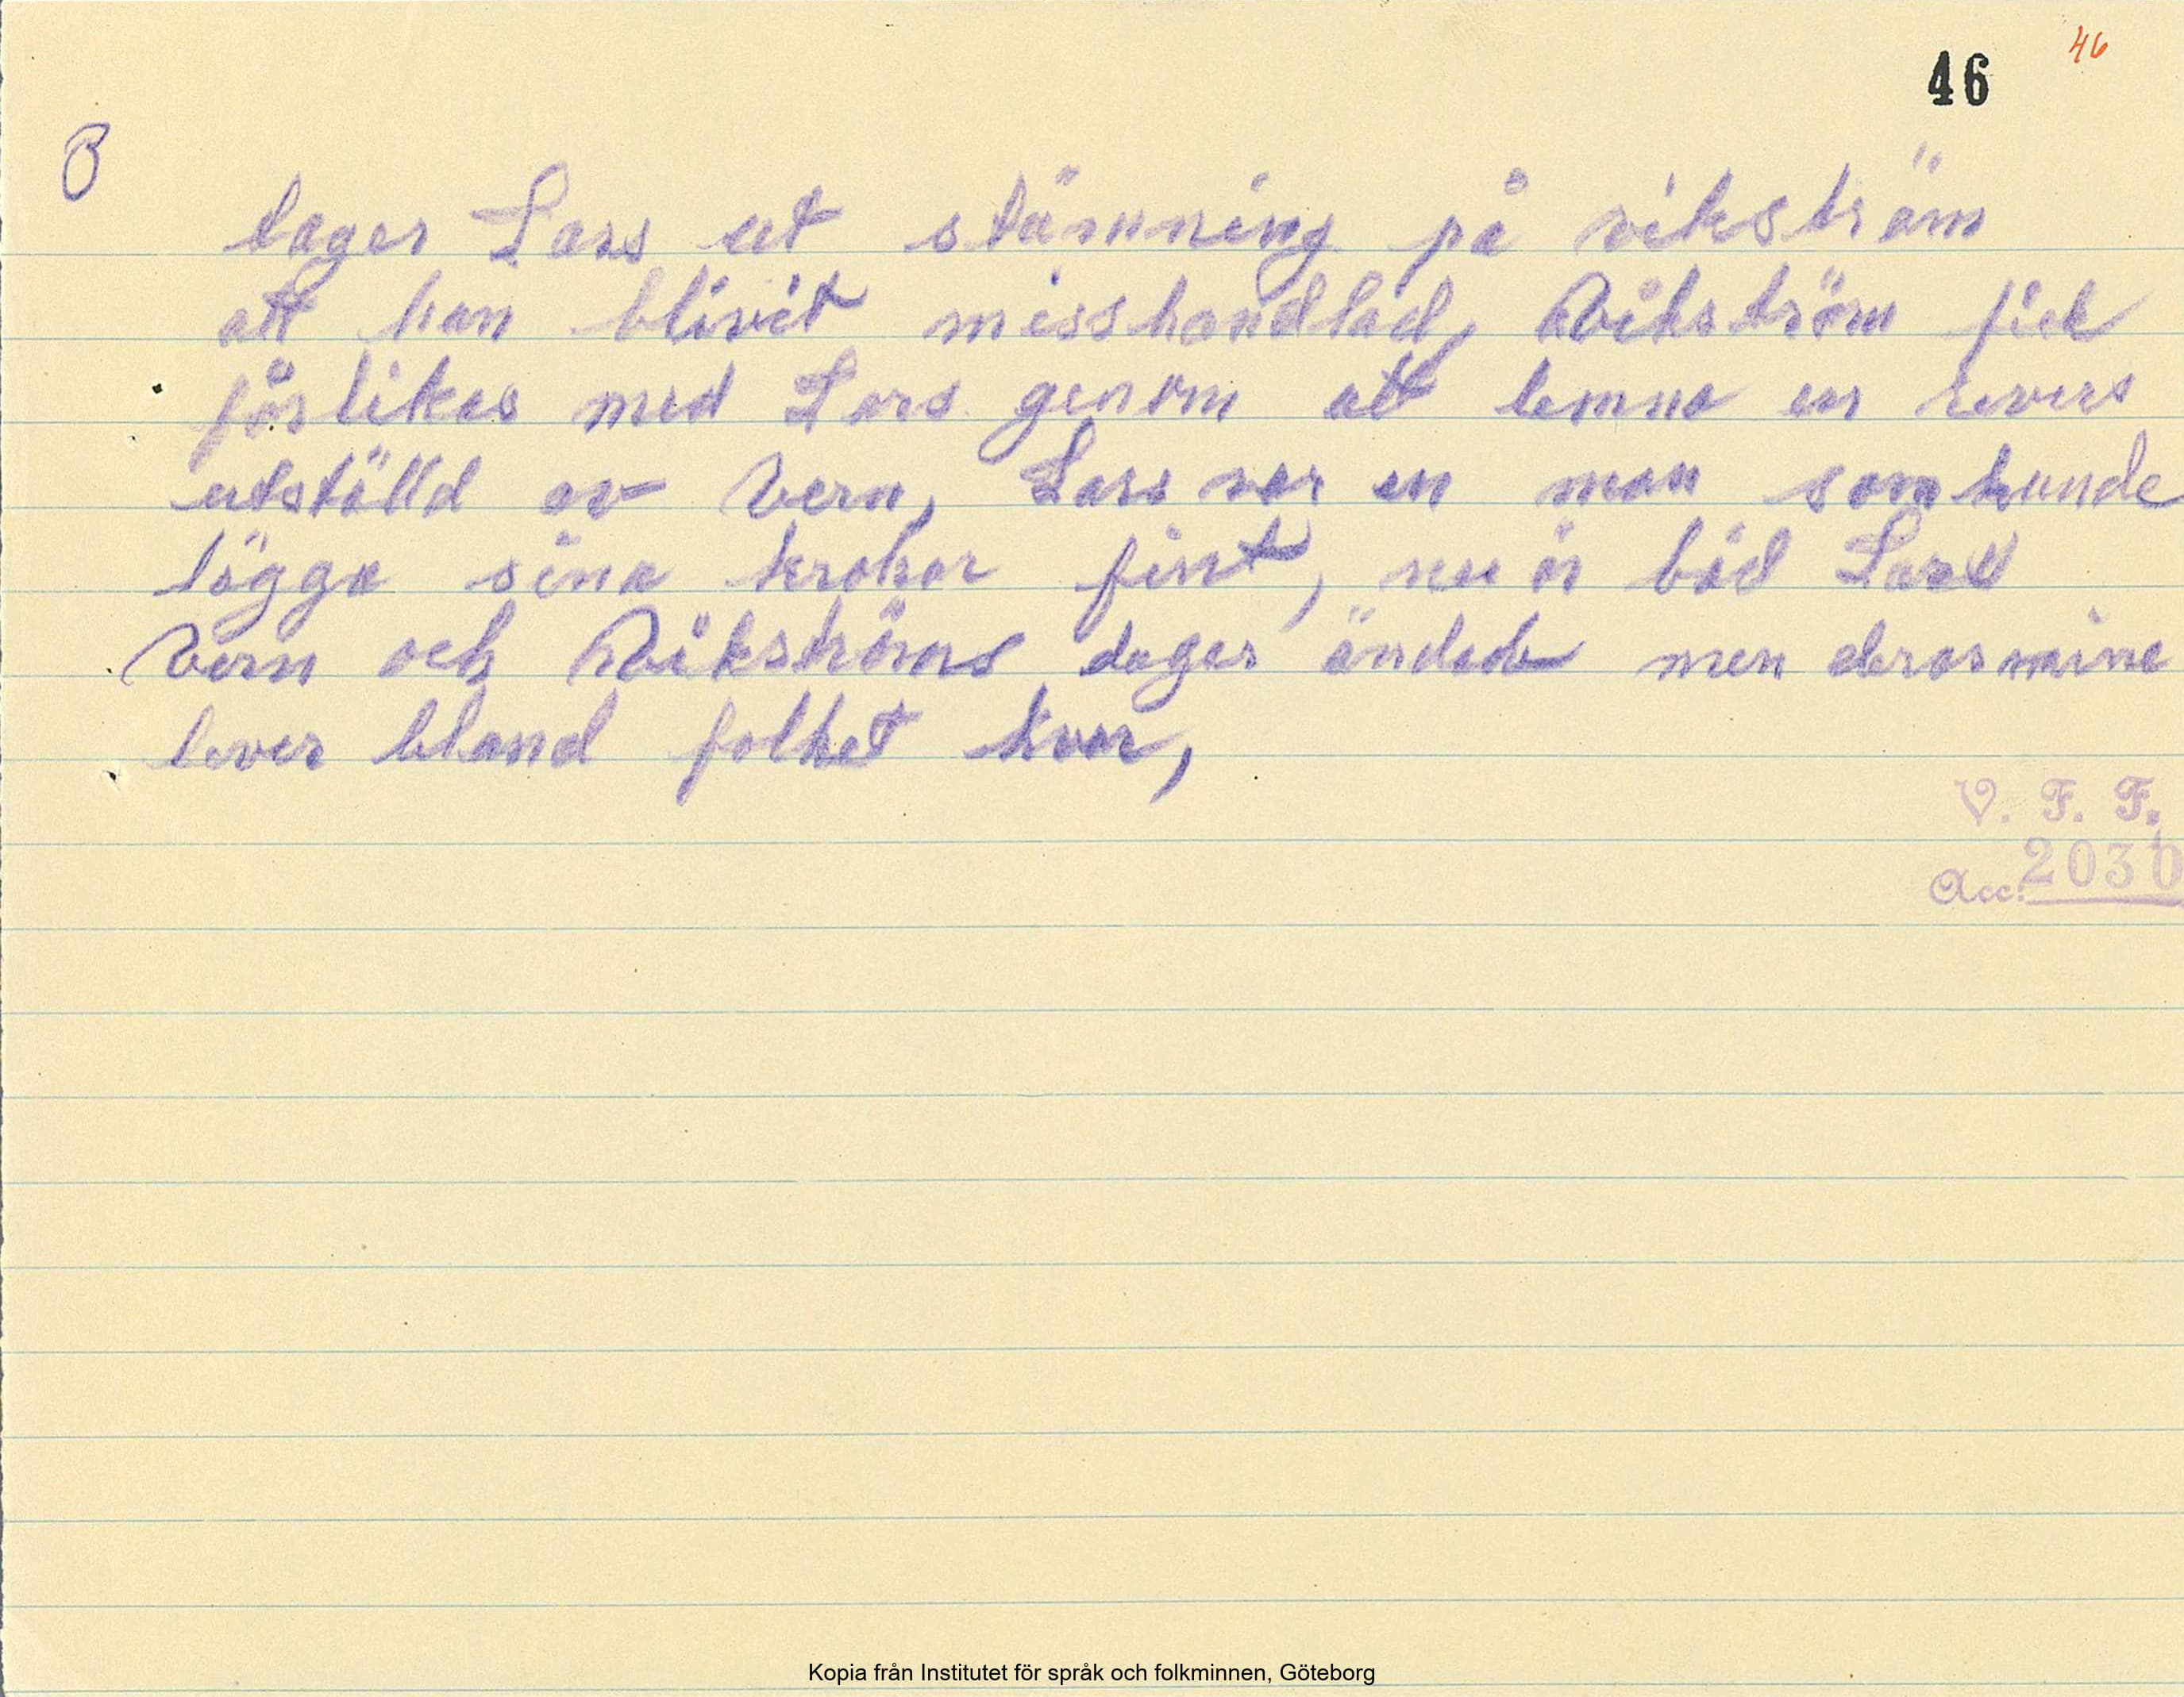 46
46
8
tager Lars ut stämning på vikström
att han blivit misshandlad, Wikström fick
förlikas med Lars genom att lemna en revers
utställd av Vern, Lars var en man som kunde
lägga sina krokar fint, nu är båd Lars
Vern och Wikströms dagar ändade men deras mine
lever bland folket kvar,
V. F. F.
Acc: 2036
Kopia från Institutet för språk och folkminnen, Göteborg